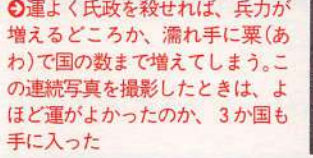 ➲運よく氏政を殺せれば、兵力が
増えるどころか、濡れ手に粟(あ
わ)で国の数まで増えてしまう。こ
の連続写真を撮影したときは、よ
ほど運がよかったのか、3か国も
手に入った